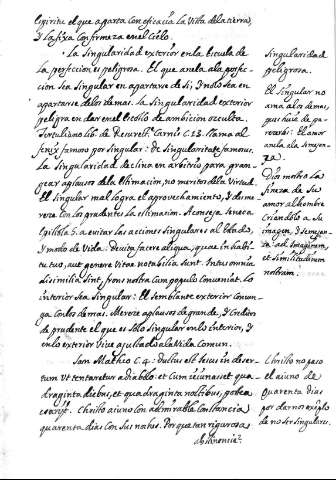 espiritu el que aparta con eficacia la Vista de la tierra,
y la fixa con firmeza en el Cielo.
La Singularidad exterior en la Escuela de
la perfeccion es peligrosa. El que anela a la perfec-
cion sea Singular en apartarse de Si, y no lo sea en
apartarse de los demas. La Singularidad exterior
peligra en dar en el escollo de ambicion oculta.
Tertuliano lib. de Resurrest. Carnis C. 13. llama al
fenix famoso por singular: De singularitate famosus.
La singularidad declina en arbitrio para gran-
gear aplausos de la estimacion, no meritos de la Virtud.
El Singular malogra el aprovechamiento, y desme-
reze con los prudentes la estimacion. Aconseja Seneca
Epistola 5. a evitar las acciones singulares al estado,
y modo de Vida. Devita facere aliqua, quae in habi-
tu tuo, aut genere Vitae notabilia sint. Intus omnia
dissimilia sint, frons nostra cum populo conveniat. Lo
interior sea Singular: El Semblante exterior Conven-
ga Con los demas. Mereze aplausos de grande, y Credito
de prudente el que es Solo Singular en lo interior, y
en lo exterior Vive ajustado a la Vida Comun.
San Matheo C. 4: Ductus est Iesus in deser-
tum Vt tentaretur a diabolo. et Cum ieiunasset qua-
draginta diebus, et quadraginta noctibus, postea
esuriit. Christo aiuno con admirable Constancia
quarenta dias Con sus noches. Porque tan rigurosa
abstinencia?
Singularidad
peligrosa.
El Singular no
ama a los demas,
pues huie de pa-
recerse: El amor
anela a la semejan-
za.
Dios mostro la
fineza de Su
amor al hombre
Criandolo a Su
imagen, y semejan-
za: ad Imaginem,
et similitudinem
nostram.
Christo no paso
el aiuno de
quarenta dias
por darnos exemplo
de no ser Singulares.